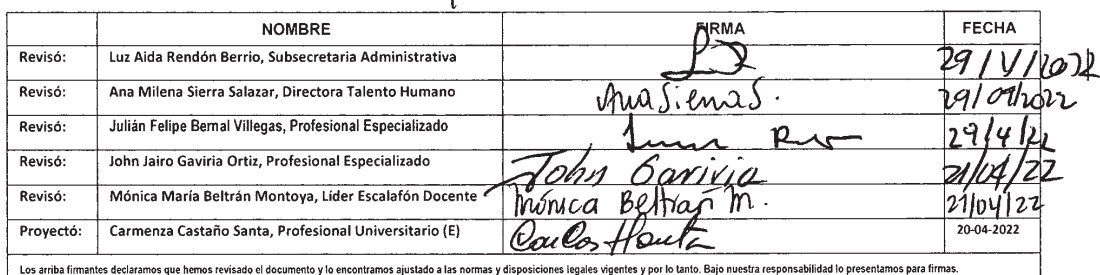 NOMBRE FIRMA FECHA
Revisó: Luz Aida Rendón Berrio, Subsecretaria Administrativa 29/V/2022
Revisó: Ana Milena Sierra Salazar, Directora Talento Humano Ana Sierra S.
Revisó: Julián Felipe Bernal Villegas, Profesional Especializado 29/4/22
Revisó: John Jairo Gaviria Ortiz, Profesional Especializado John Gaviria 21/04/22
Revisó: Mónica María Beltrán Montoya, Líder Escalafón Docente Mónica Beltrán M. 21/04/22
Proyectó: Carmenza Castaño Santa, Profesional Universitario (E) 20-04-2022
Los arriba firmantes declaramos que hemos revisado el documento y lo encontramos ajustado a las normas y disposiciones legales vigentes y por lo tanto. Bajo nuestra responsabilidad lo presentamos para firmas.